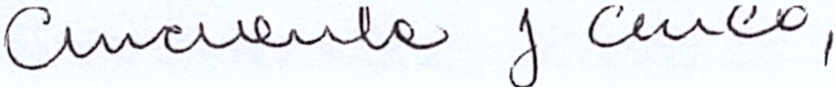 Cincuenta y cinco,